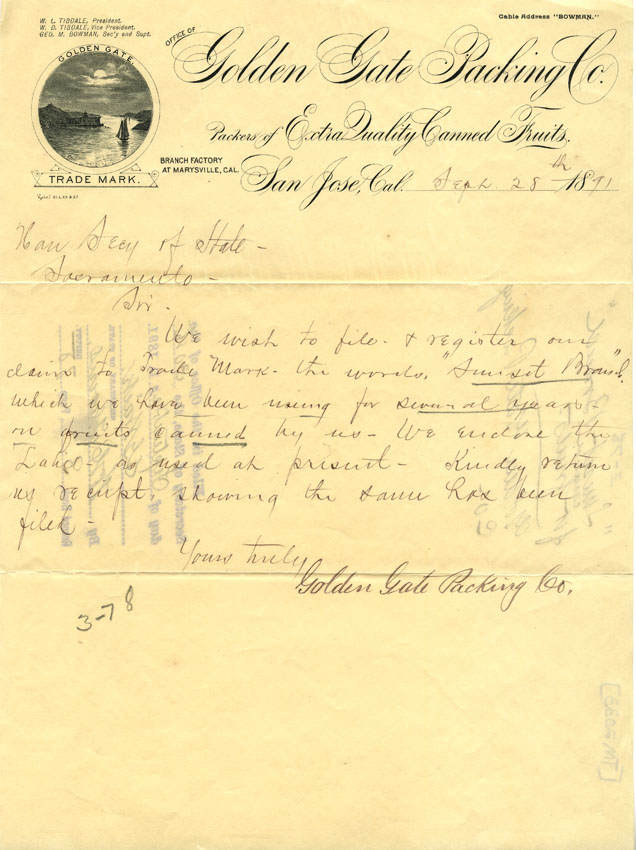 W. L. TISDALE, President.
W. D. TISDALE, Vice President.
GEO. M. BOWMAN, Sec'y and Supt.
Cable Address "BOWMAN."
OFFICE OF
Golden Gate Packing Co.
GOLDEN GATE
Packers of Extra Quality Canned Fruits.
BRANCH FACTORY
AT MARYSVILLE, CAL.
TRADE MARK.
San Jose, Cal. Sept. 28th 1891
Hon Secy of State -
Sacramento -
Sir -
We wish to file - & register our
claim to Trade Mark - the words, "Sunset Brand",
which we have been using for several years -
on fruits canned by us - We enclose the
Label - as used at present - Kindly return
us receipt showing the same has been
filed -
Yours truly
Golden Gate Packing Co.
3-78